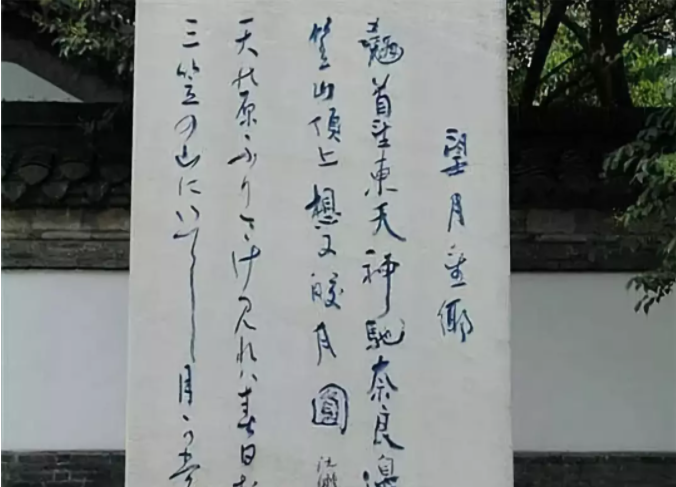 望月望鄉
翹首望東天神馳奈良邊
笠山頂上想又皎月圓
天の原ふりさけ見れハ春日
三笠の山にいでし月か